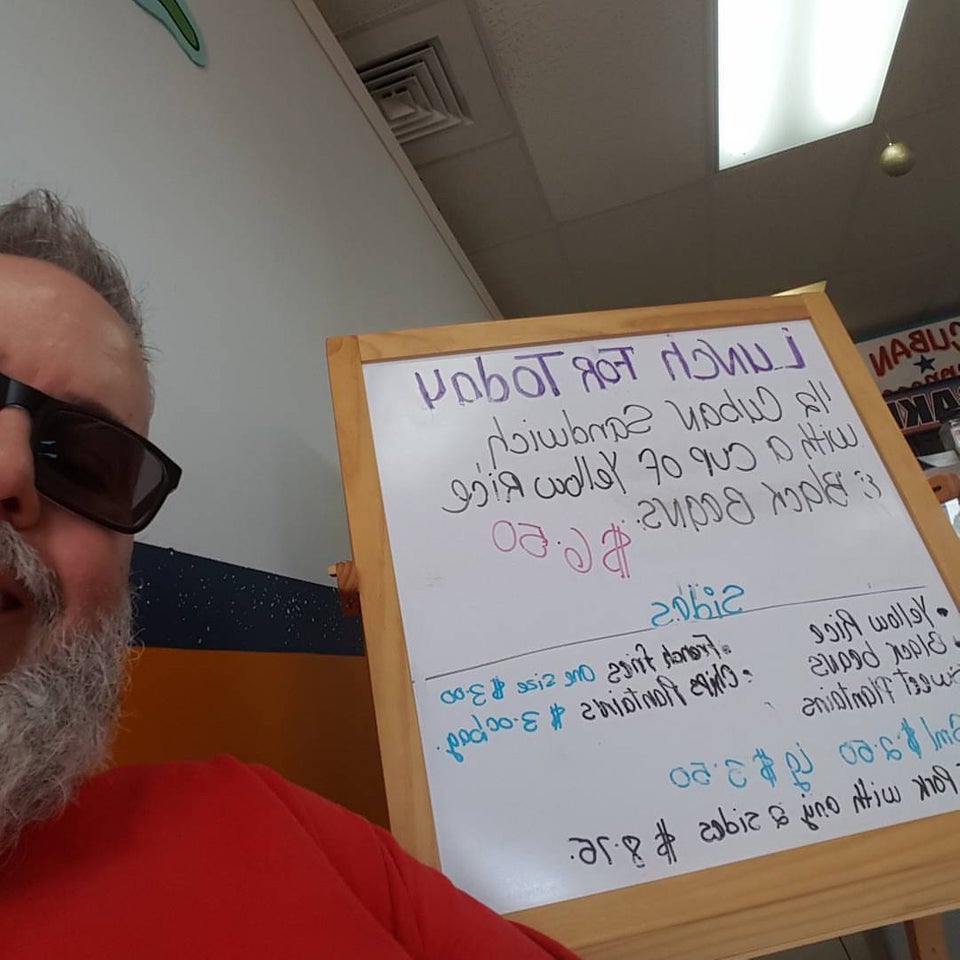 Lunch For Today
1/2 Cuban Sandwich
with a cup of Yellow Rice
& Black Beans.
$6.50
Sides
• Yellow Rice
• Black beans
Sweet Plantains
• French fries one size $3.00
• Chips Plantains $3.00 bag.
Sml $2.50 lg $3.50
Pork with any 2 sides $8.75.
CUBAN